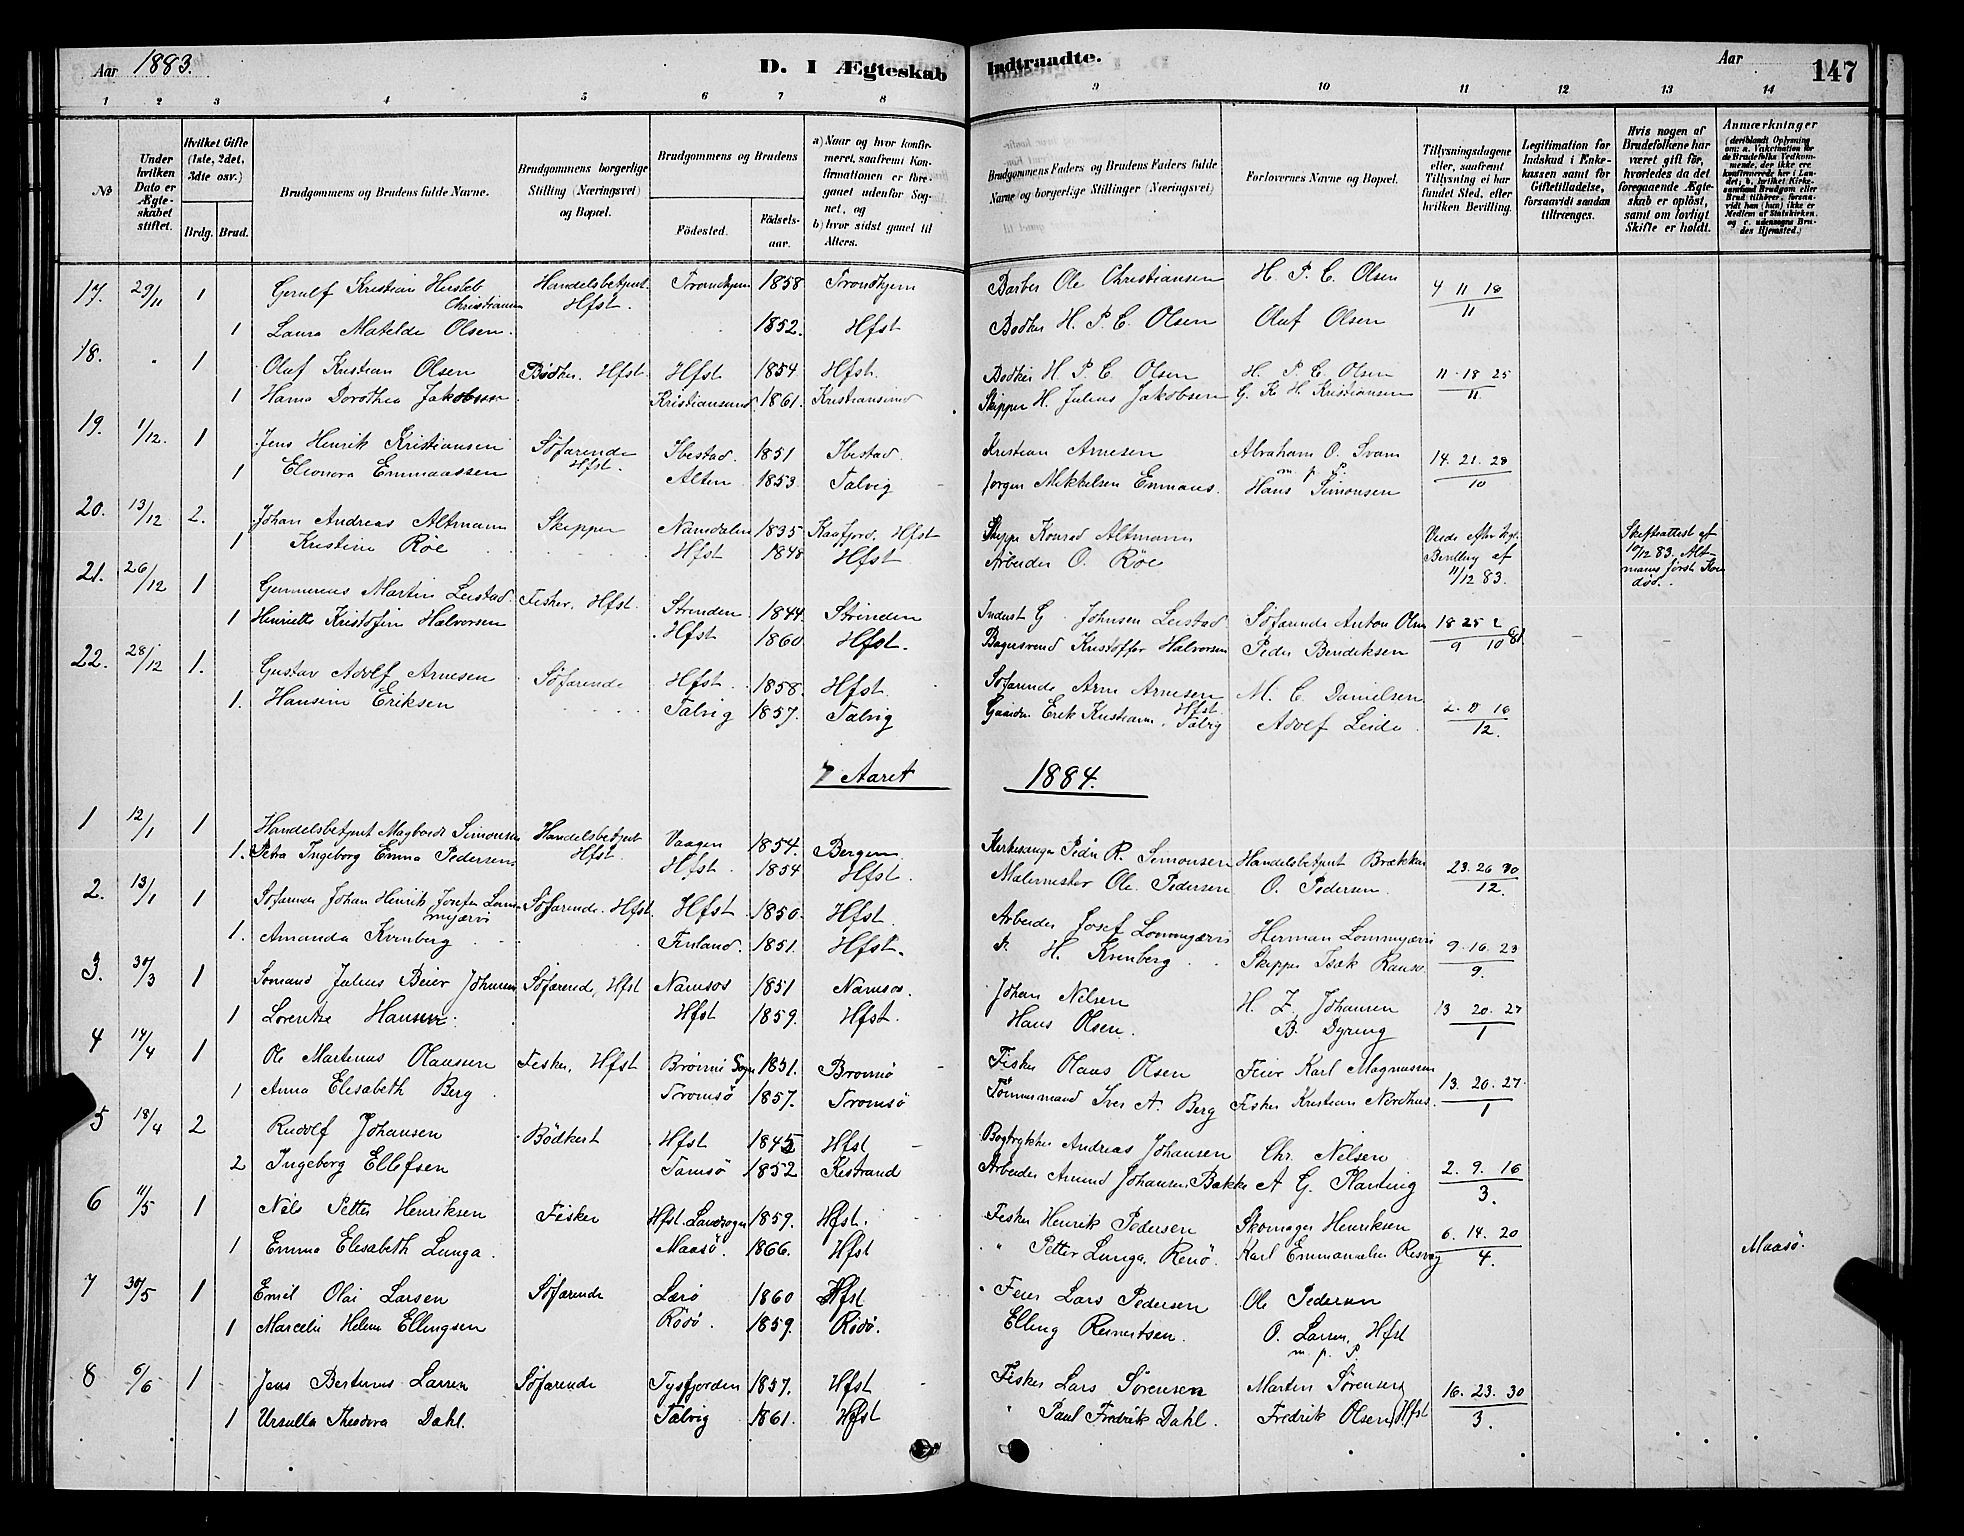 Aar 1883.
D. I Ægteskab Indtraadte.
Aar
147
1 2 3 4 5 6 7 8 9 10 11 12 13 14
No
Under hvilken Dato er Ægteskabet stiftet.
Hvilket Gifte (1ste, 2det, 3die osv.)
Brdg. Brud.
Brudgommens og Brudens fulde Navne.
Brudgommens borgerlige Stilling (Næringsvei) og Bopæl.
Brudgommens og Brudens
Fødested.
Fødselsaar.
a) Naar og hvor konfirmeret, saafremt Konfirmationen er foregaaet udenfor Sognet, og
b) hvor sidst gaaet til Alters.
Brudgommens Faders og Brudens Faders fulde Navne og borgerlige Stillinger (Næringsvei)
Forlovernes Navne og Bopæl.
Tillysningsdagene eller, saafremt Tillysning ei har fundet Sted, efter hvilken Bevilling.
Legitimation for Indskud i Enkekassen samt for Giftetilladelse, forsaavidt saadan tiltrænges.
Hvis nogen af Brudefolkene har været gift før, hvorledes da det foregaaende Ægteskab er opløst, samt om lovligt Skifte er holdt.
Anmærkninger
17. 29/11 1 Gerulf Kristian Husleb Christiansen Handelsbetjent Hfst. Trondhjem 1858 Trondhjem Barber Ole Christiansen H. P. C. Olsen 4 11 18/11
1 Laura Matilde Olsen. 1852. Hfst Bødker H. P. C. Olsen Oluf Olsen
18. 1 Oluf Kristian Olsen Bødker. Hfst. Hfst 1854 Hfst. Bødker H. P. C. Olsen H. P. C. Olsen 11 18 25/11
1 Hanna Dorothea Jakobsen Kristiansund 1861. Kristiansund Skipper H. Julius Jakobsen G. K. H. Kristiansen
19. 1/12. 1 Jens Henrik Kristiansen Söfarende Hfst. Ibestad 1851 Ibestad. Kristian Arnesen Abraham O. Svam m. p. P. 14. 21. 28/10
1 Eleonora Emmaassen Alten 1853. Talvig Jørgen Mikkelsen Emmaus. Hans Simonsen
20. 13/12 2. Johan Andreas Altmann Skipper Namdalen 1835 Kaafjord. Hfst Skipp. Konrad Altmann Viede efter kgl. Bevilling af 11/12 83. Skifteattest af 10/12 83. Altmanns første Kone død.
1 Kristine Röe Hfst 1848 Hfst. Arbeider O. Röe
21. 26/12 1 Gunnerius Martin Leistad Fisker. Hfst. Strinden 1844 Strinden Inderst G. Johnsen Leistad Söfarende Anton Olsen 18 25 2/9 10
1 Henriette Kristofine Halvorsen Hfst 1860 Hfst. Bagersvend Kristoffer Halvorsen Peder Bendiksen
22. 28/12 1. Gustav Adolf Arnesen Söfarende Hfst. 1858. Hfst. Söfarende Arne Arnesen Hfst. M. C. Danielsen 2. 9 16/12.
1. Hansine Eriksen Talvig 1857. Talvig Gaardm. Erik Kristians. Talvig Adolf Leide.
I Aaret 1884.
1 12/1 1 Handelsbetjent Magbordt Simonsen Handelsbetjent Hfst. Vaagen 1854. Bergen Kirkesanger Peder R. Simonsen Handelsbetjent Brækkan 23. 26 30/12.
1. Petra Ingeborg Emma Pedersen Hfst. 1854 Hfst. Malermester Ole Pedersen O. Pedersen.
2. 13/1 1 Söfarende Johan Henrik Josefsen Lommjærvi Söfarende. Hfst. Hfst 1850. Hfst. Arbeider Josef Lommjærvi Herman Lommjærvi 9. 16. 23/9.
1. Amanda Kvenberg Finland. 1851. Hfst. H. Kvenberg Skipper Isak
3. 30/3 1 Sömand Julius Beier Johansen Söfarende, Hfst Namsos 1851 Namsos. Johan Nilsen H. Z. Johansen 13 20. 27/1
1 Lorentze Hansen. Hfst 1859. Hfst. Hans Olsen. B. Dyring
4 14/4 1 Ole Martinus Olaussen Fisker, Hfst Brönnö Sogn 1851. Brönnö Fisker Olaus Olsen Feier Karl Magnussen 13. 20. 27/1
1 Anna Elisabeth Berg Tromsö 1857. Tromsö Tömmermand Iver A. Berg Fisker Kristian Nordhus.
5 18/4 2 Rudolf Johansen Bödkert Hfst 1845 Hfst Bogtrykker Andreas Johansen Chr. Nilsen 2. 9. 16/3.
2 Ingeborg Ellefsen Tamsö 1852 Kistrand Arbeider Amund Johansen Bakke A. G. Harting
6 11/5 1 Nils Petter Henriksen Fisker Hfst. Landsogn 1859. Hfst. Fisker Henrik Pedersen Skomager Henriksen 6. 14. 20/4.
1 Emma Elesabeth Lunga. Maasö. 1866. Hfst " Petter Lunga, Renö. Karl Emmanuelsen Maasö.
7 30/5 1 Emil Olai Larsen Söfarende Lurö 1860 Hfst " Feier Lars Pedersen Ole Pedersen
1 Marcelie Helene Ellingsen Rödö. 1859. Rödö. Elling Reinertsen. O. Larsen, Hfst m. p. P.
8 6/6 1 Jens Bertinus Larsen Söfarende Tysfjorden 1857. Hfst Fisker Lars Sörensen Martin Sörensen 16. 23. 30/3.
1 Ursulla Theodora Dahl. Talvig 1861. Hfst " Paul Fredrik Dahl. Fredrik Olsen, Hfst